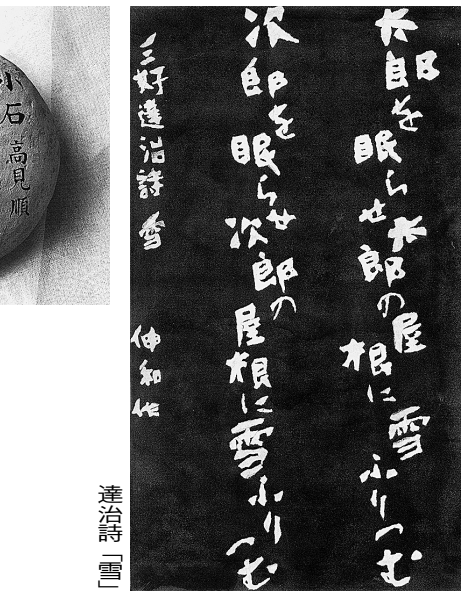 太郎を眠らせ太郎の屋根に雪ふりつむ
次郎を眠らせ次郎の屋根に雪ふりつむ
三好達治詩 雪
伸和作
小石
高見順
達治詩「雪」